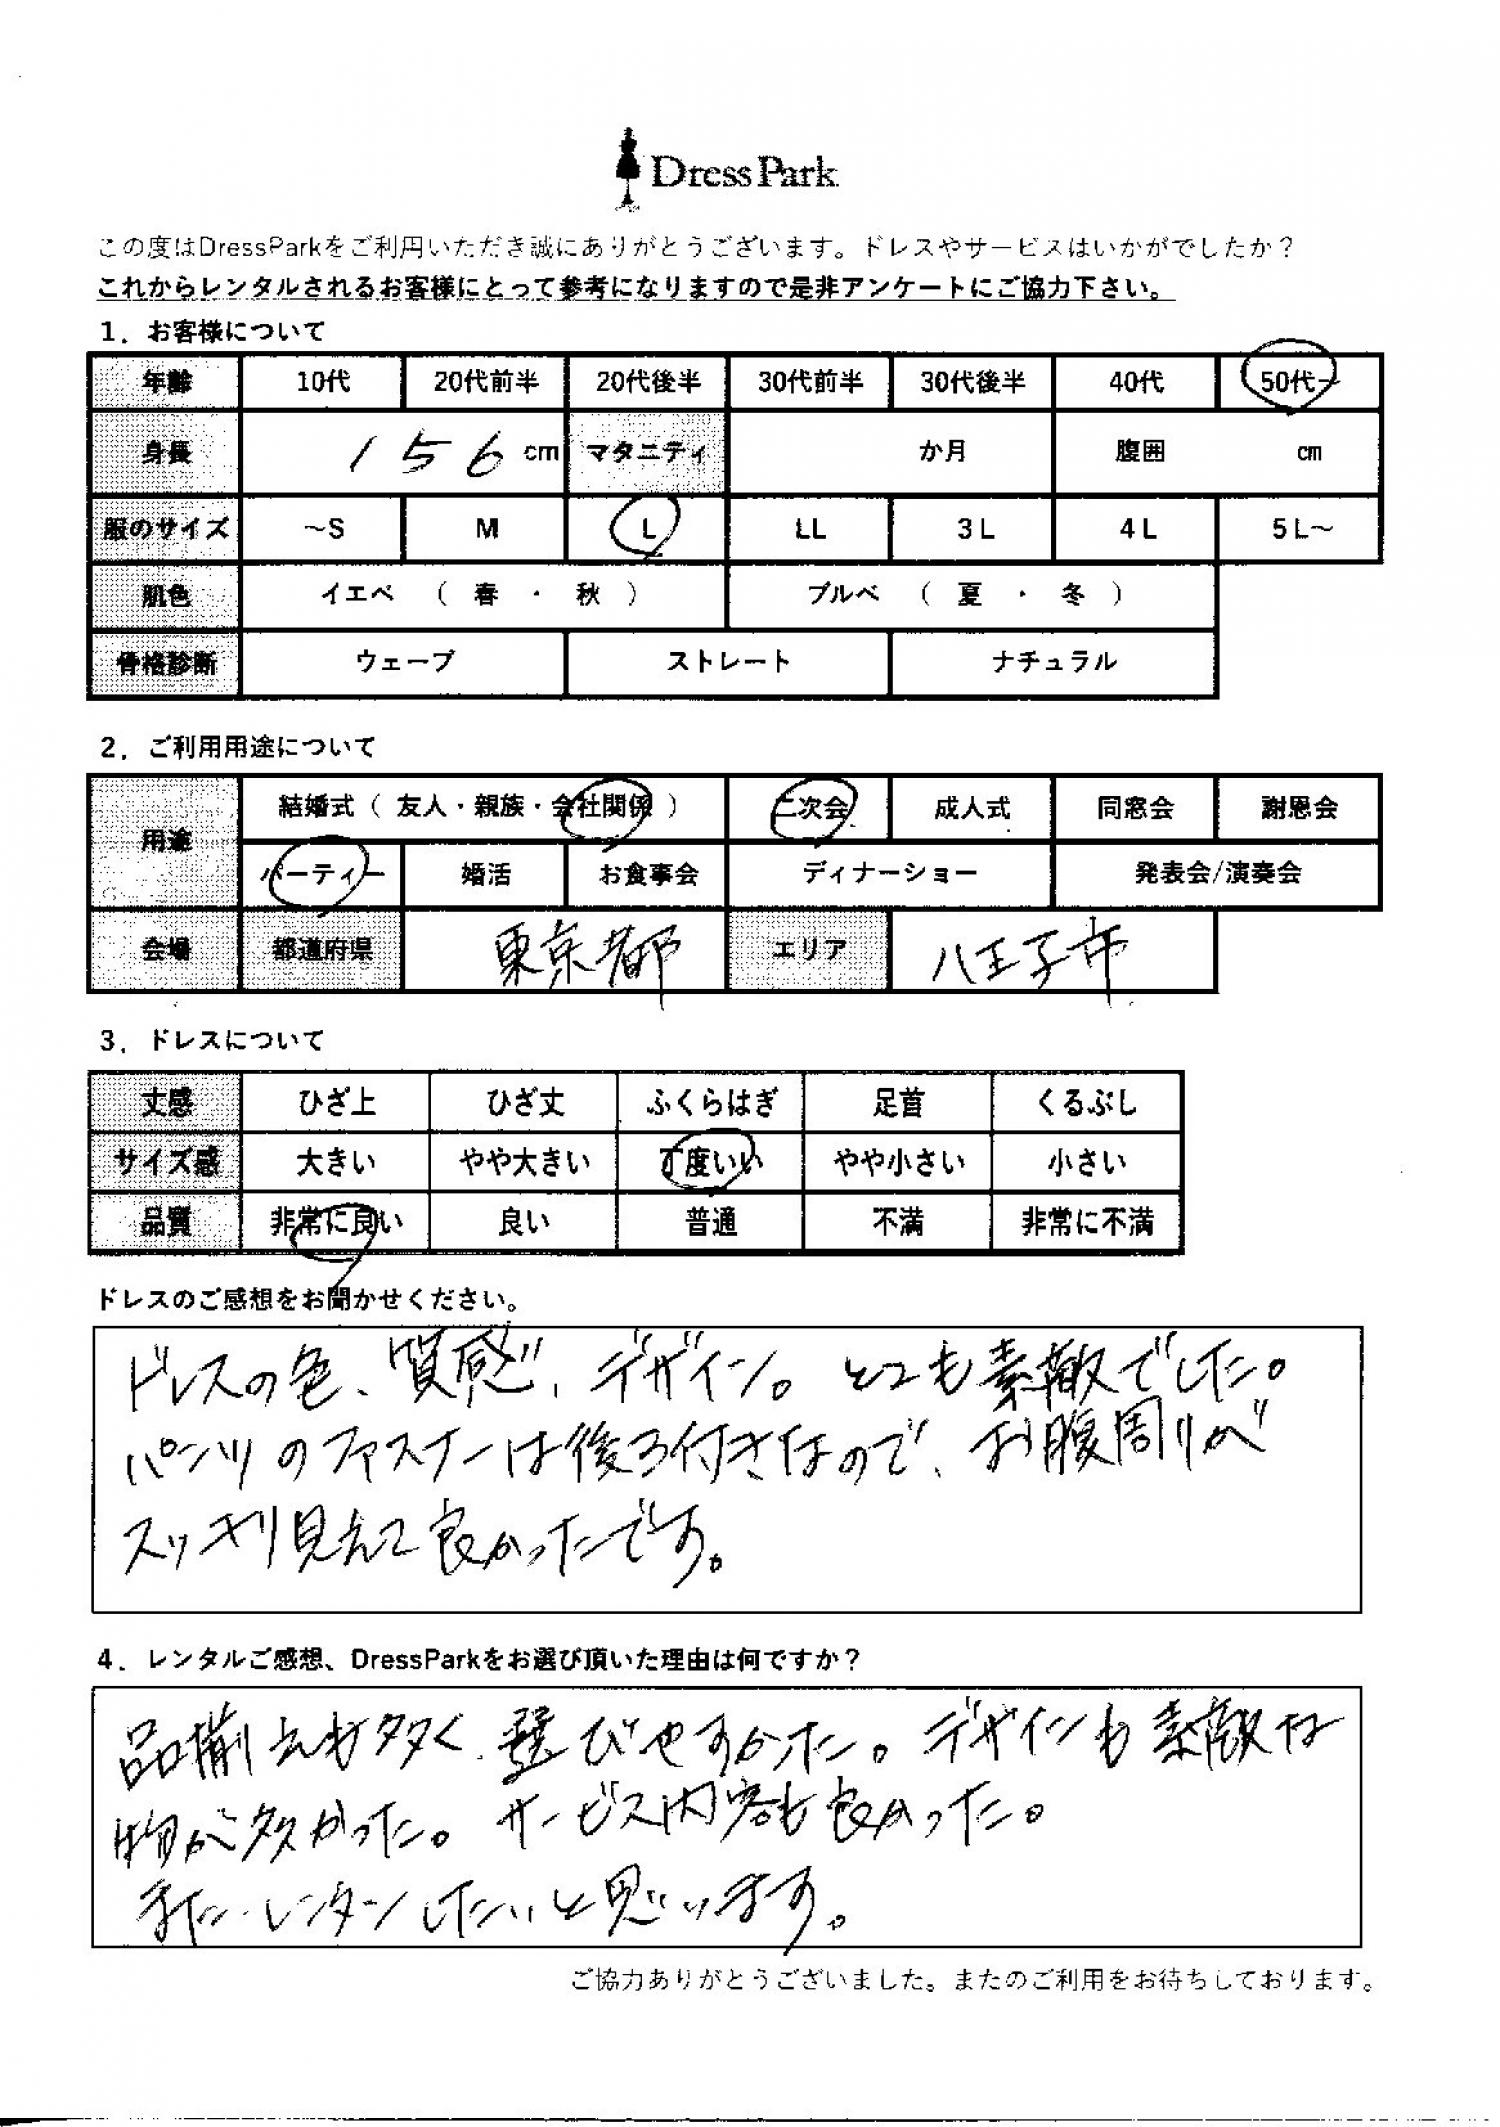 DressPark
この度はDressParkをご利用いただき誠にありがとうございます。ドレスやサービスはいかがでしたか？
これからレンタルされるお客様にとって参考になりますので是非アンケートにご協力下さい。
1．お客様について
年齢 10代 20代前半 20代後半 30代前半 30代後半 40代 50代～
身長 156cm マタニティ か月 腹囲 cm
服のサイズ ～S M L LL 3L 4L 5L～
肌色 イエベ （ 春 ・ 秋 ） ブルベ （ 夏 ・ 冬 ）
骨格診断 ウェーブ ストレート ナチュラル
2．ご利用用途について
用途 結婚式（ 友人・親族・会社関係 ） 二次会 成人式 同窓会 謝恩会
パーティー 婚活 お食事会 ディナーショー 発表会/演奏会
会場 都道府県 東京都 エリア 八王子市
3．ドレスについて
丈感 ひざ上 ひざ丈 ふくらはぎ 足首 くるぶし
サイズ感 大きい やや大きい 丁度いい やや小さい 小さい
品質 非常に良い 良い 普通 不満 非常に不満
ドレスのご感想をお聞かせください。
ドレスの色、質感、デザイン。とても素敵でした。
パンツのファスナーは後ろ付きなので、お腹周りが
スッキリ見えて良かったです。
4．レンタルご感想、DressParkをお選び頂いた理由は何ですか？
品揃えも多く、選びやすかった。デザインも素敵な
物が多かった。サービス内容も良かった。
また、レンタンしたいと思います。
ご協力ありがとうございました。またのご利用をお待ちしております。